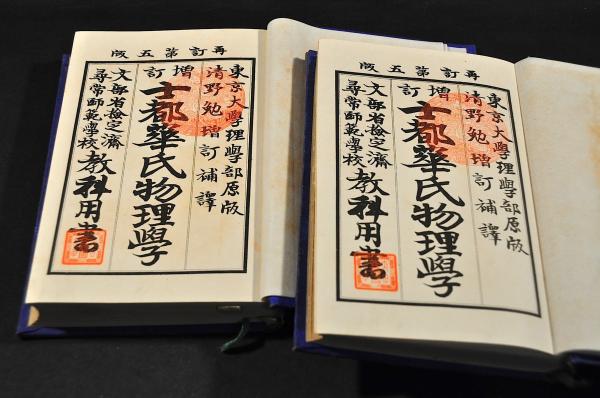 再訂第五版
東京大學理學部原版
清野勉增訂補譯
增訂
士都華氏物理學
文部省檢定濟
尋常師範學校
教科用書
再訂第五版
東京大學理學部原版
清野勉增訂補譯
增訂
士都華氏物理學
文部省檢定濟
尋常師範學校
教科用書